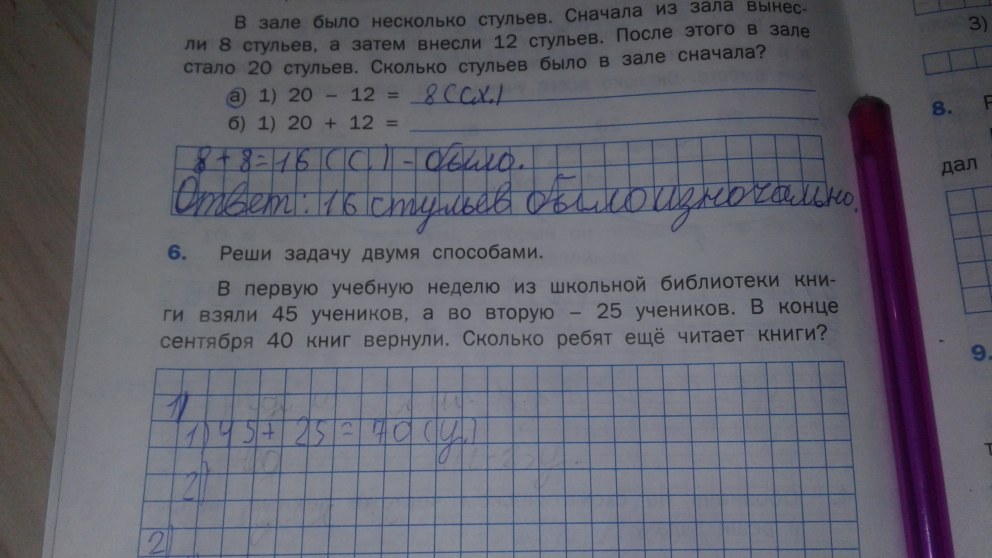 В зале было несколько стульев. Сначала из зала вынес-
ли 8 стульев, а затем внесли 12 стульев. После этого в зале
стало 20 стульев. Сколько стульев было в зале сначала?
а) 1) 20 – 12 = 8 (ст.)
б) 1) 20 + 12 =
8 + 8 = 16 (с.) – было.
Ответ: 16 стульев было изначально.
6. Реши задачу двумя способами.
В первую учебную неделю из школьной библиотеки кни-
ги взяли 45 учеников, а во вторую – 25 учеников. В конце
сентября 40 книг вернули. Сколько ребят ещё читает книги?
1)
1) 45 + 25 = 70 (у.)
2)
2)
3)
8.
дал
9.